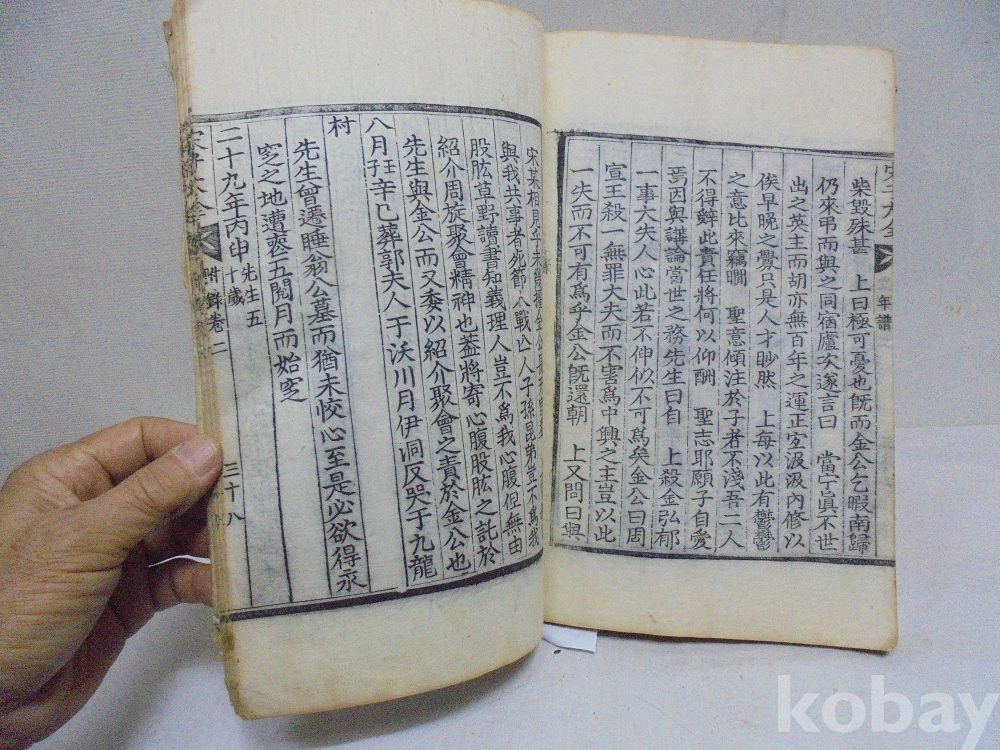 柴毀殊甚　上曰極可憂也旣而金公乞暇南歸
仍來弔而與之同宿廬次遂言曰　當宁眞不世
出之英主而胡亦無百年之運正宜汲汲內修以
俟早晩之釁只是人才眇然　上每以此有鬱鬱
之意比來竊覸　聖意傾注於子者不淺吾二人
不得辭此責任將何以仰酬　聖志耶願子自愛
焉因與講論當世之務先生曰自　上殺金弘郁
一事大失人心此若不伸似不可爲矣金公曰周
宣王殺一無罪大夫而不害爲中興之主豈以此
一失而不可有爲乎金公旣還朝　上又問曰與
年譜
宋某相見乎未幾擢金公
與我共事者死節人戰亡人子孫昆弟豈不爲我
股肱草野讀書知義理人豈不爲我心腹但無由
紹介周旋聚會精神也蓋將寄心腹股肱之託於
先生與金公而又委以紹介聚會之責於金公也
八月壬子辛巳葬郭夫人于沃川月伊洞反哭于九龍
村
先生曾遷睡翁公墓而猶未恔心至是必欲得永
窆之地遭喪五閱月而始窆
二十九年丙申先生五十歲
宋子大全
附錄卷二
三十八
kobay